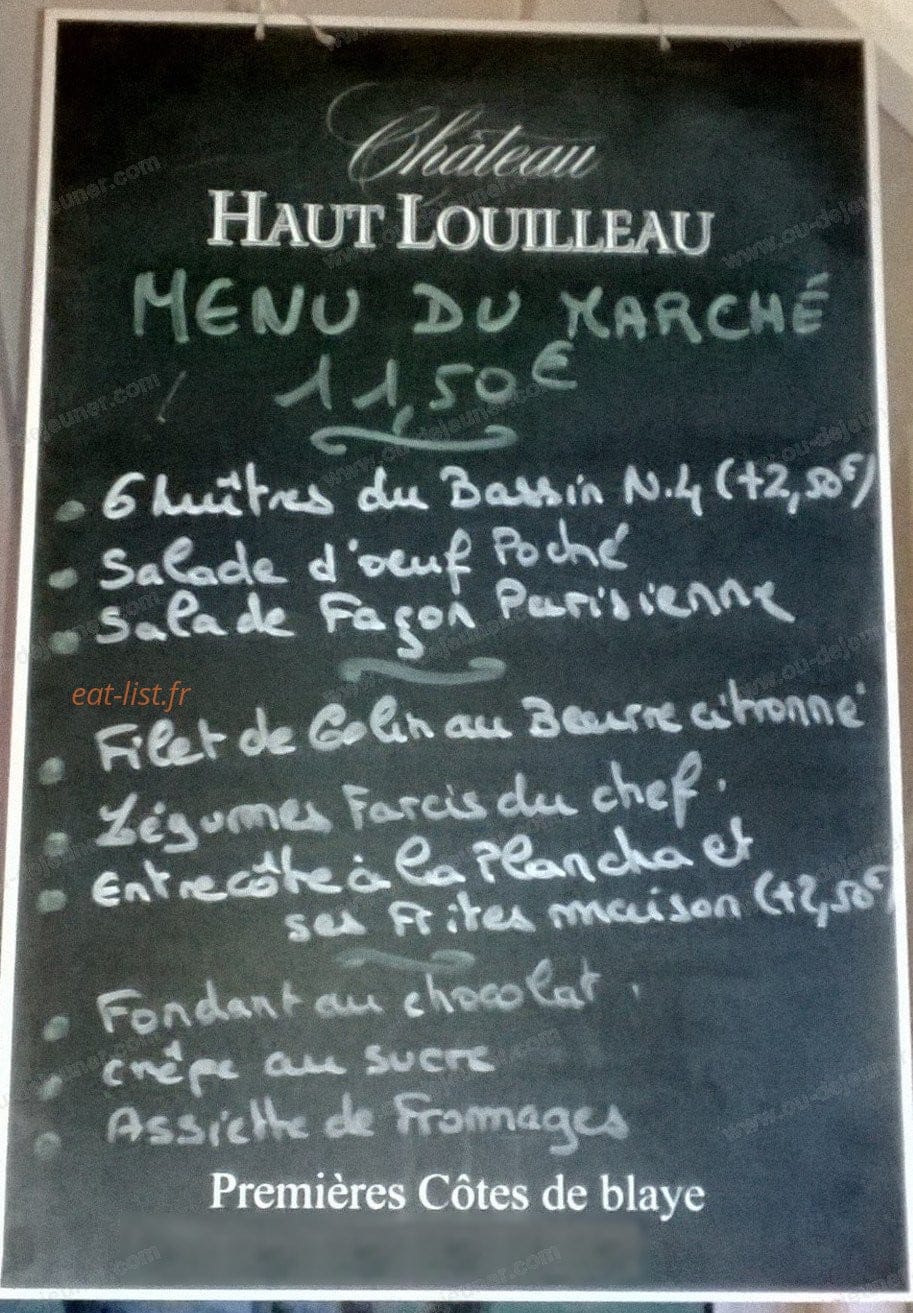 Château
HAUT LOUILLEAU
MENU DU MARCHÉ
11,50€
• 6 huîtres du Bassin N.4 (+2,50€)
• Salade d'oeuf Poché
• Salade Façon Parisienne
eat-list.fr
• Filet de Colin au Beurre citronné
• Légumes Farcis du chef.
• Entrecôte à la Plancha et
ses Frites maison (+2,50€)
• Fondant au chocolat.
• crêpe au sucre
• Assiette de Fromages
Premières Côtes de blaye
www.ou-dejeuner.com